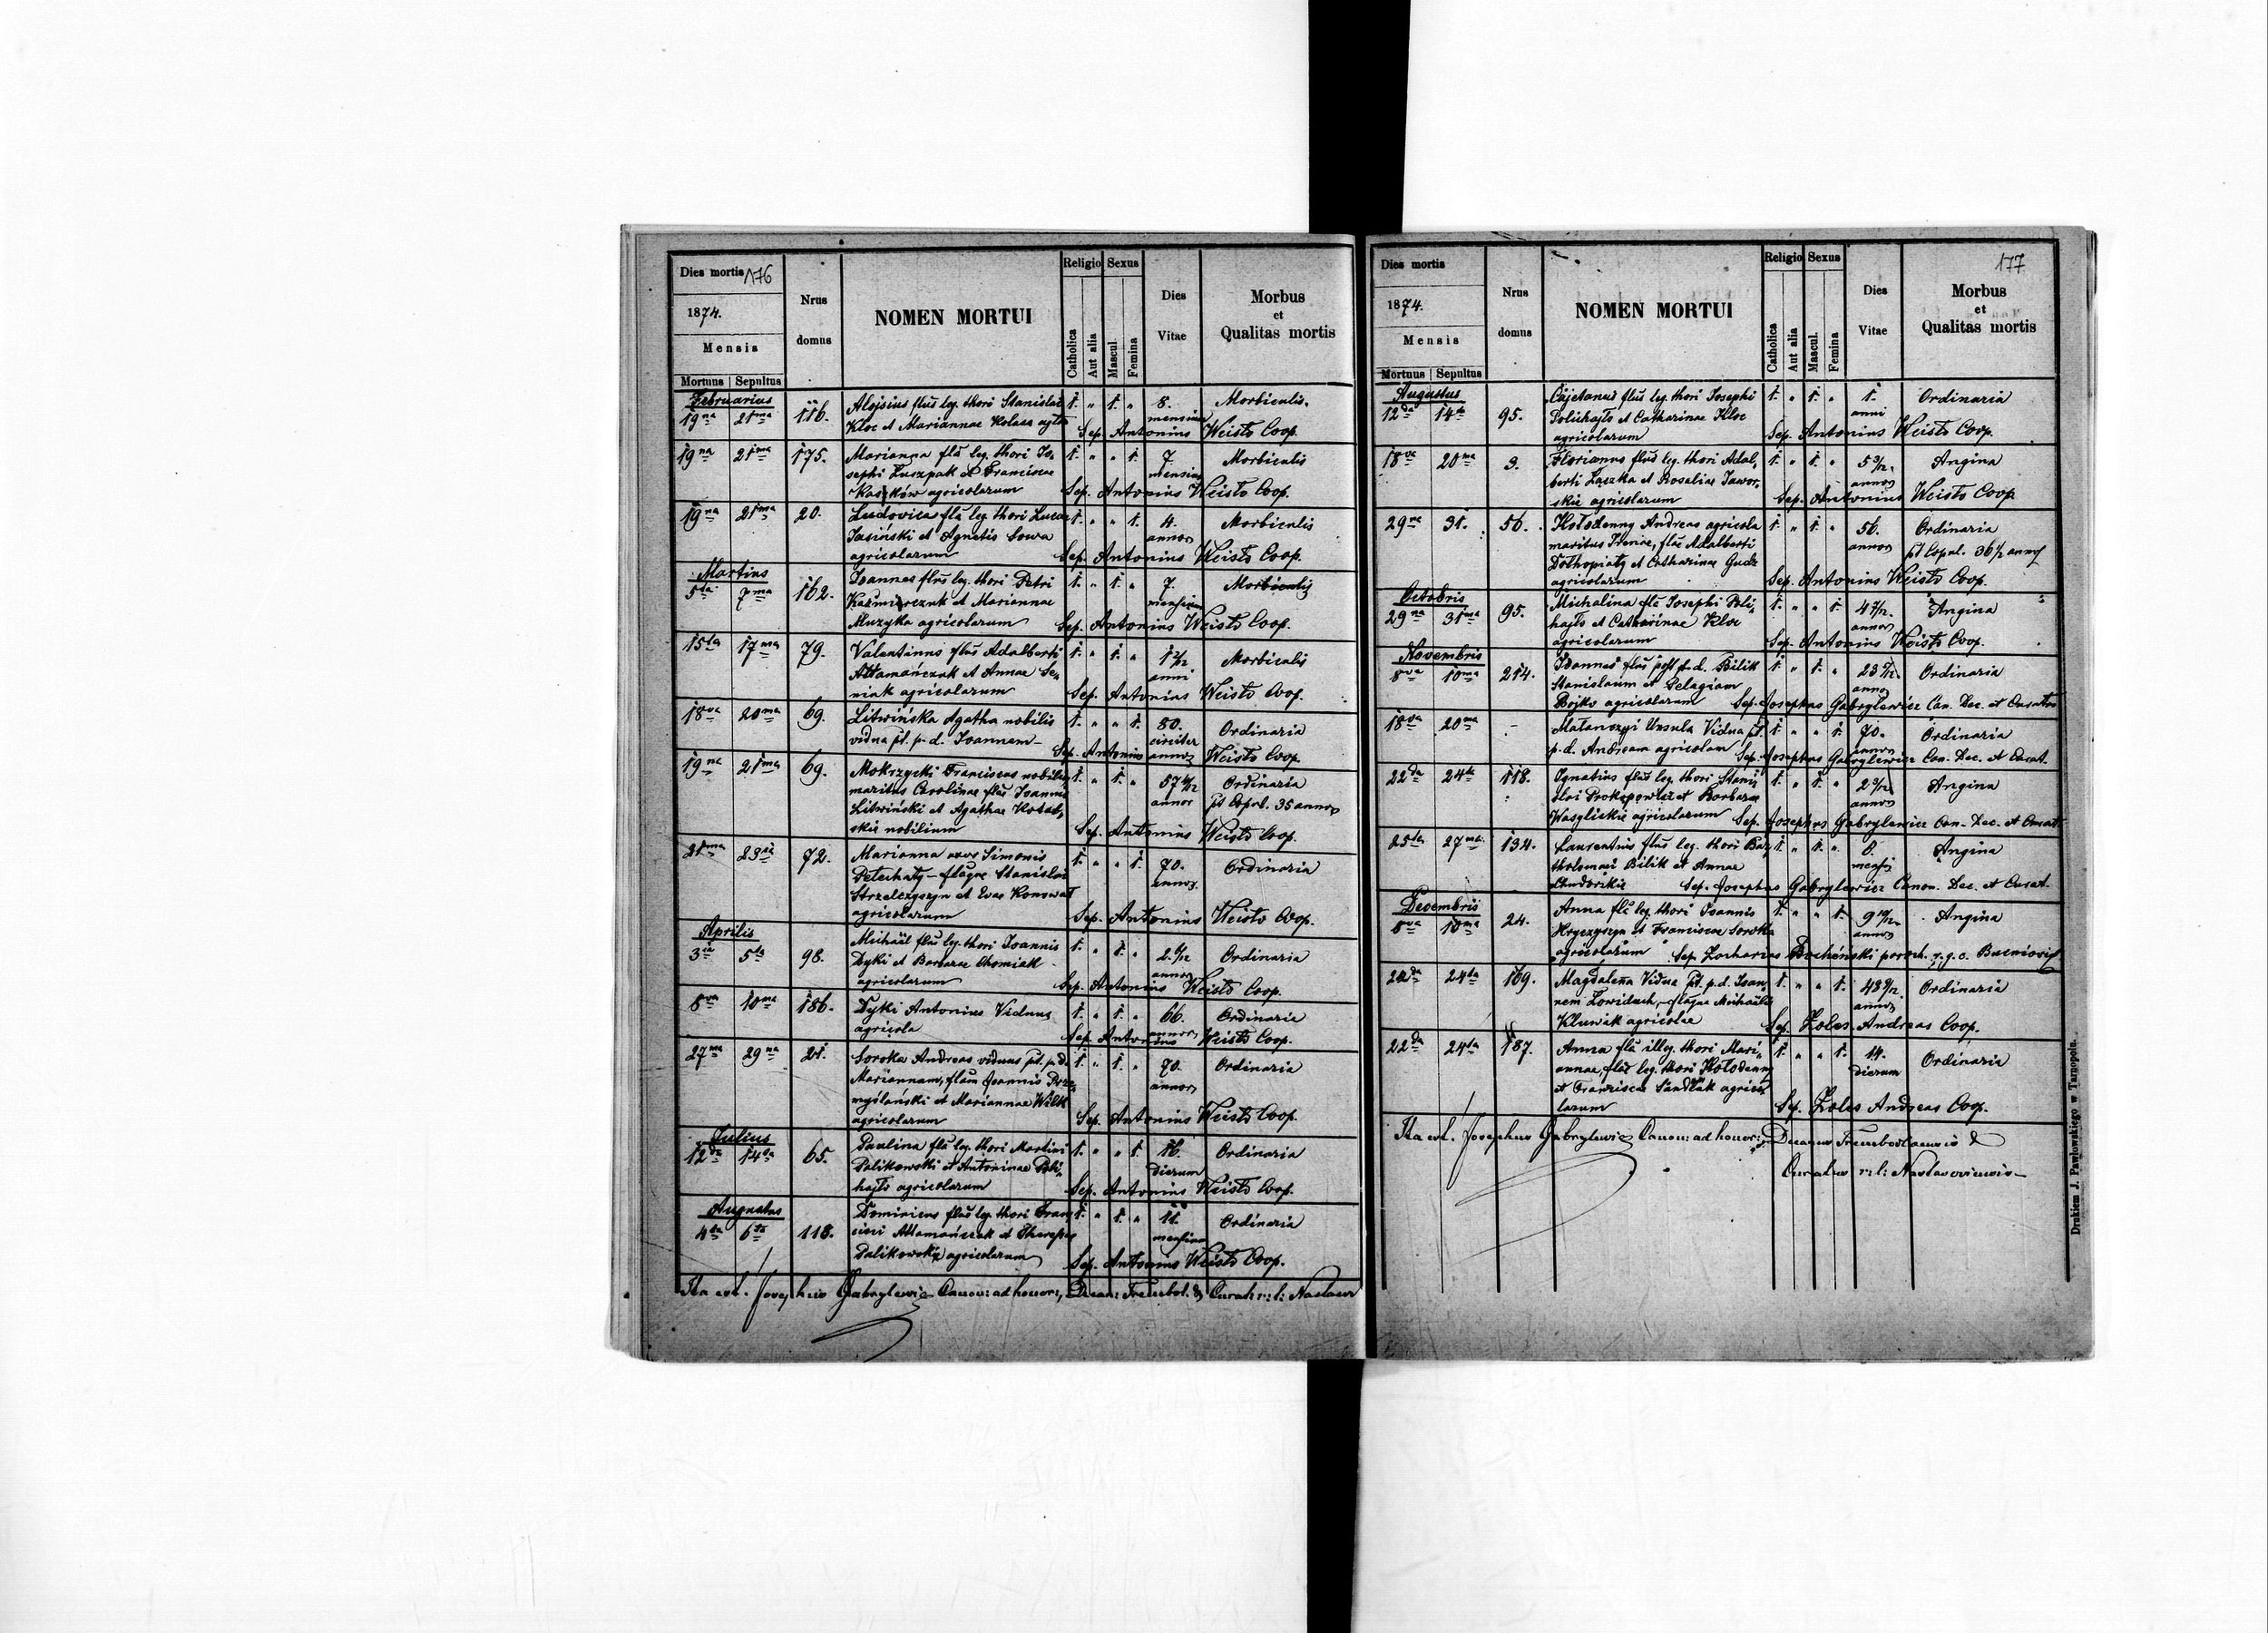 Dies mortis 176
1874.
Mensis
Mortuus | Sepultus
Nrus domus
NOMEN MORTUI
Religio Sexus
Catholica
Aut alia
Mascul.
Femina
Dies Vitae
Morbus
et
Qualitas mortis
Februarius
19na 21ma 116. Aloisius flus leg. thori Stanislai 1. " 1. " 8. Morbiculis.
Kloc et Mariannae Kolasa agtor mensium
Sep. Antonius Weisto Coop.
19na 21ma 175. Marianna fla leg. thori Jo- 1. " " 1. 7 Morbiculis
sephi Luszpak et Franciscae mensium
Kaszków agricolarum Sep. Antonius Weisto Coop.
19na 21ma 20. Ludovica fla leg. thori Lucae 1. " " 1. 4. Morbiculis
Jasiński et Agnetis Sowa annor
agricolarum Sep. Antonius Weisto Coop.
Martius
5ta 7ma 162. Joannes flus leg. thori Petri 1. " 1. " 7. Morbiculis
Kazmirczuk et Mariannae mensium
Muzyka agricolarum Sep. Antonius Weisto Coop.
15ta 17ma 79. Valentinus flus Adalberti 1. " 1. " 1 2/12 Morbiculis
Attamańczuk et Annae Se- anni
niak agricolarum Sep. Antonius Weisto Coop.
18va 20ma 69. Litwińska Agatha nobilis 1. " " 1. 80. Ordinaria
vidua pt. p. d. Joannem circiter
Sep. Antonius annor Weisto Coop.
19na 21ma 69. Mokrzycki Franciscus nobilis, 1. " 1. " 57 Ordinaria
maritus Carolinae flus Joannis annor pt Copul. 35 annor
Litwiński et Agathae
skie nobilium Sep. Antonius Weisto Coop.
21ma 23ia 72. Marianna uxor Simonis 1. " " 1. 70. Ordinaria
Petechaty – flaque Stanislai annor
Strzelczyszyn et Evae Konował
agricolarum Sep. Antonius Weisto Coop.
Aprilis
3ia 5ta 98. Michaël flus leg. thori Joannis 1. " 1. " 2 Ordinaria
Dyki et Barbarae Chomiak annor
agricolarum Sep. Antonius Weisto Coop.
8va 10ma 186. Dyki Antonius Viduus 1. " 1. " 66. Ordinaria
agricola annor
Sep. Antonius Weisto Coop.
27ma 29na 21. Soroka Andreas viduus pt. p. d. 1. " 1. " 70. Ordinaria
Mariannam, flus Joannis Prze- annor
myślański et Mariannae Wilk
agricolarum Sep. Antonius Weisto Coop.
Julius
12da 14ta 65. Paulina fla leg. thori Martini 1. " " 1. 16. Ordinaria
Palikowski et Antoninae Poli- Dierum
hajto agricolarum Sep. Antonius Weisto Coop.
Augustus
4ta 6ta 118. Dominicus flus leg. thori Fran- 1. " 1. " 11. Ordinaria
cisci Attamańczuk et Theresiae mensium
Palikowskie agricolarum Sep. Antonius Weisto Coop.
Ita est. Josephus Gabrylewicz Canon: ad honor:, Decan: Trembol. & Curat: r: l:
Dies mortis
1874.
Mensis
Mortuus | Sepultus
Nrus domus
NOMEN MORTUI
Religio Sexus
Catholica
Aut alia
Mascul.
Femina
Dies Vitae
177
Morbus
et
Qualitas mortis
Augustus
12da 14ta 95. Cajetanus flus leg. thori Josephi 1. " 1. " 1. Ordinaria
Polihajto et Catharinae Kloc anni
agricolarum Sep. Antonius Weisto Coop.
18va 20ma 3. Florianus flus leg. thori Adal- 1. " 1. " 5 3/12. Angina
berti Laszka et Rosaliae Jawor- annor
skie agricolarum Sep. Antonius Weisto Coop
29na 31. 56. Hołodenny Andreas agricola 1. " 1. " 56. Ordinaria
maritus Irenae, flus Adalberti annor pt Copul. 36 1/2 annor
et Catharinae Gudz
agricolarum Sep. Antonius Weisto Coop.
Octobris
29na 31ma 95. Michalina fla Josephi Poli- 1. " " 1. 4 Angina
hajto et Catharinae Kloc annor
agricolarum Sep. Antonius Weisto Coop.
Novembris
8va 10ma 214. Joannes flus post p. d. Bilik 1. " 1. " 23 Ordinaria
Stanislaum et Pelagiam annor
Bojko agricolarum Sep. Josephus Gabrylewicz Can. Dec. et Curatus
18va 20ma - Ursula Vidua pt. 1. " " 1. 70. Ordinaria
p. d. Andream agricolam annor
Sep. Josephus Gabrylewicz Can. Dec. et Curat.
22da 24ta 118. Ignatius flus leg. thori Stani- 1. " 1. " 2 Angina
slai Prokopowicz et Barbarae annor
agricolarum Sep. Josephus Gabrylewicz Can. Dec. et Curat.
25ta 27ma 134. Laurentius flus leg. thori Bar- 1. " 1. " 8. Angina
tholomaei Bilik et Annae mensium
Sep. Josephus Gabrylewicz Canon. Dec. et Curat.
Decembris
8va 10ma 24. Anna fla leg. thori Joannis 1. " " 1. 9 10/12 Angina
Hryczyszyn et Franciscae Soroka annor
agricolarum Sep. Zacharias Bocheński paroch. r. g. c.
22da 24ta 169. Magdalena Vidua pt. p. d. Joan- 1. " " 1. 48 Ordinaria
nem Lowidach, flaque Michaëlis annor
Kluwak agricolae Sep. Zoles Andreas Coop.
22da 24ta 187. Anna fla illeg. thori Mari- 1. " " 1. 14. Ordinaria
annae, flae leg. thori Hołodenny Dierum
et Franciscae Sandłak agrico-
larum Sep. Zoles Andreas Coop.
Ita est. Josephus Gabrylewicz Canon: ad honor: Decanus Trembovlensis &
Curatus r: l: Nastasoviensis
Drukiem J. Pawłowskiego w Tarnopolu.